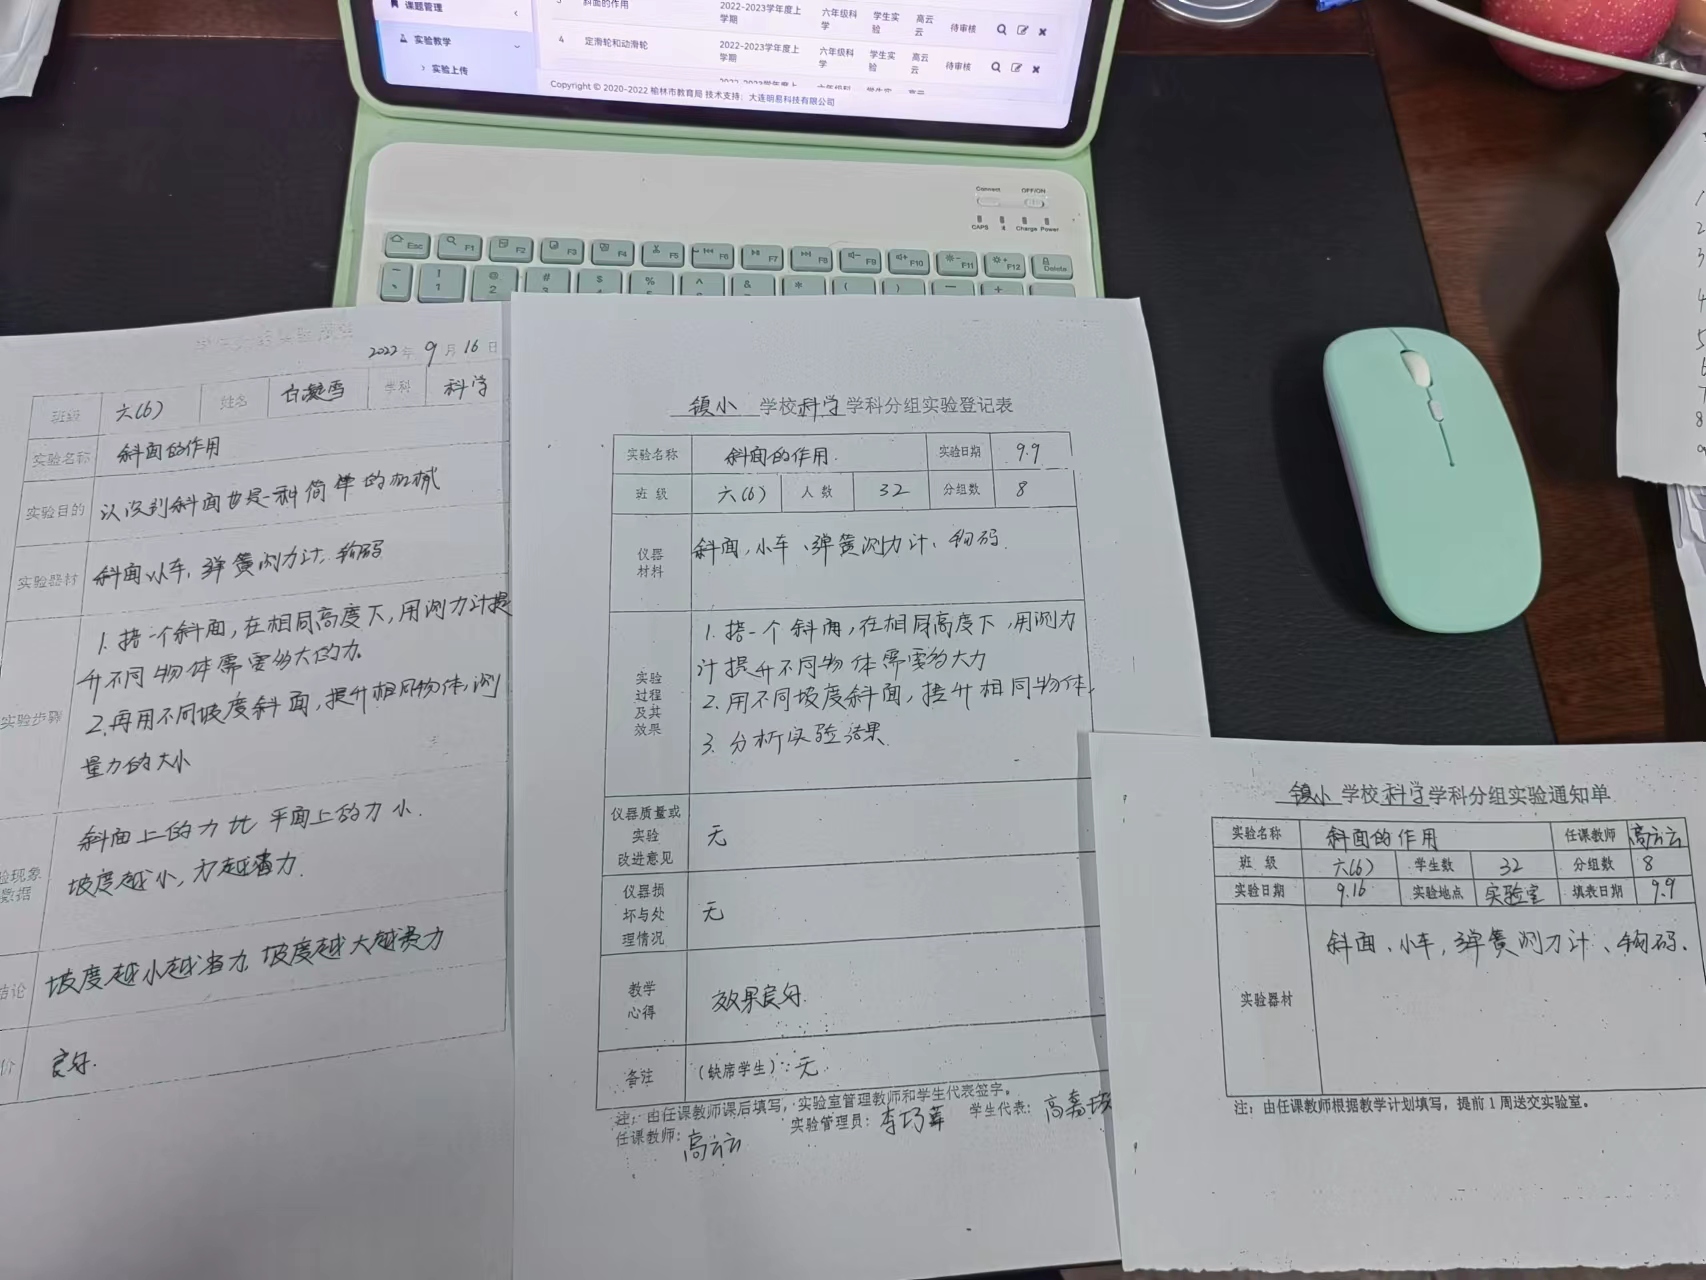 课题管理
实验教学
实验上传
斜面的作用 2022-2023学年度上学期 六年级科学 学生实验 高云云 待审核
4 定滑轮和动滑轮 2022-2023学年度上学期 六年级科学 学生实验 高云云 待审核
Copyright © 2020-2022 榆林市教育局 技术支持：大连明易科技有限公司
Connect OFF/ON
CAPS Charge Power
Esc F1 F2 F3 F4 F5 F6 F7 F8 F9 F10 F11 F12 Delete
~ ! @ # $ % ^ & * ( ) — +
1 2 3
2022年9月16日
班级 六(6) 姓名 白凝雪 学科 科学
实验名称 斜面的作用
实验目的 认识到斜面也是一种简单的机械
实验器材 斜面、小车、弹簧测力计、钩码
实验步骤
1.搭一个斜面,在相同高度下,用测力计提
升不同物体需要多大的力.
2.再用不同坡度斜面,提升相同物体,测
量力的大小
验现象
数据
斜面上的力比平面上的力小.
坡度越小,越省力.
结论 坡度越小越省力,坡度越大越费力
价 良好.
镇小 学校科学学科分组实验登记表
实验名称 斜面的作用. 实验日期 9.9
班 级 六(6) 人 数 32 分组数 8
仪器
材料
斜面,小车、弹簧测力计、钩码.
实验
过程
及其
效果
1.搭一个斜面,在相同高度下,用测力
计提升不同物体需要多大力
2.用不同坡度斜面,提升相同物体,
3.分析实验结果.
仪器质量或
实验
改进意见
无
仪器损
坏与处
理情况
无
教学
心得
效果良好.
备注 (缺席学生)：无
注：由任课教师课后填写，实验室管理教师和学生代表签字。
任课教师：高云云 实验管理员：李巧 学生代表：高嘉
镇小学校科学学科分组实验通知单
实验名称 斜面的作用 任课教师 高云云
班 级 六(6) 学生数 32 分组数 8
实验日期 9.16 实验地点 实验室 填表日期 9.9
实验器材 斜面、小车,弹簧测力计、钩码.
注：由任课教师根据教学计划填写，提前1周送交实验室。
1
2
3
4
5
6
7
8
9